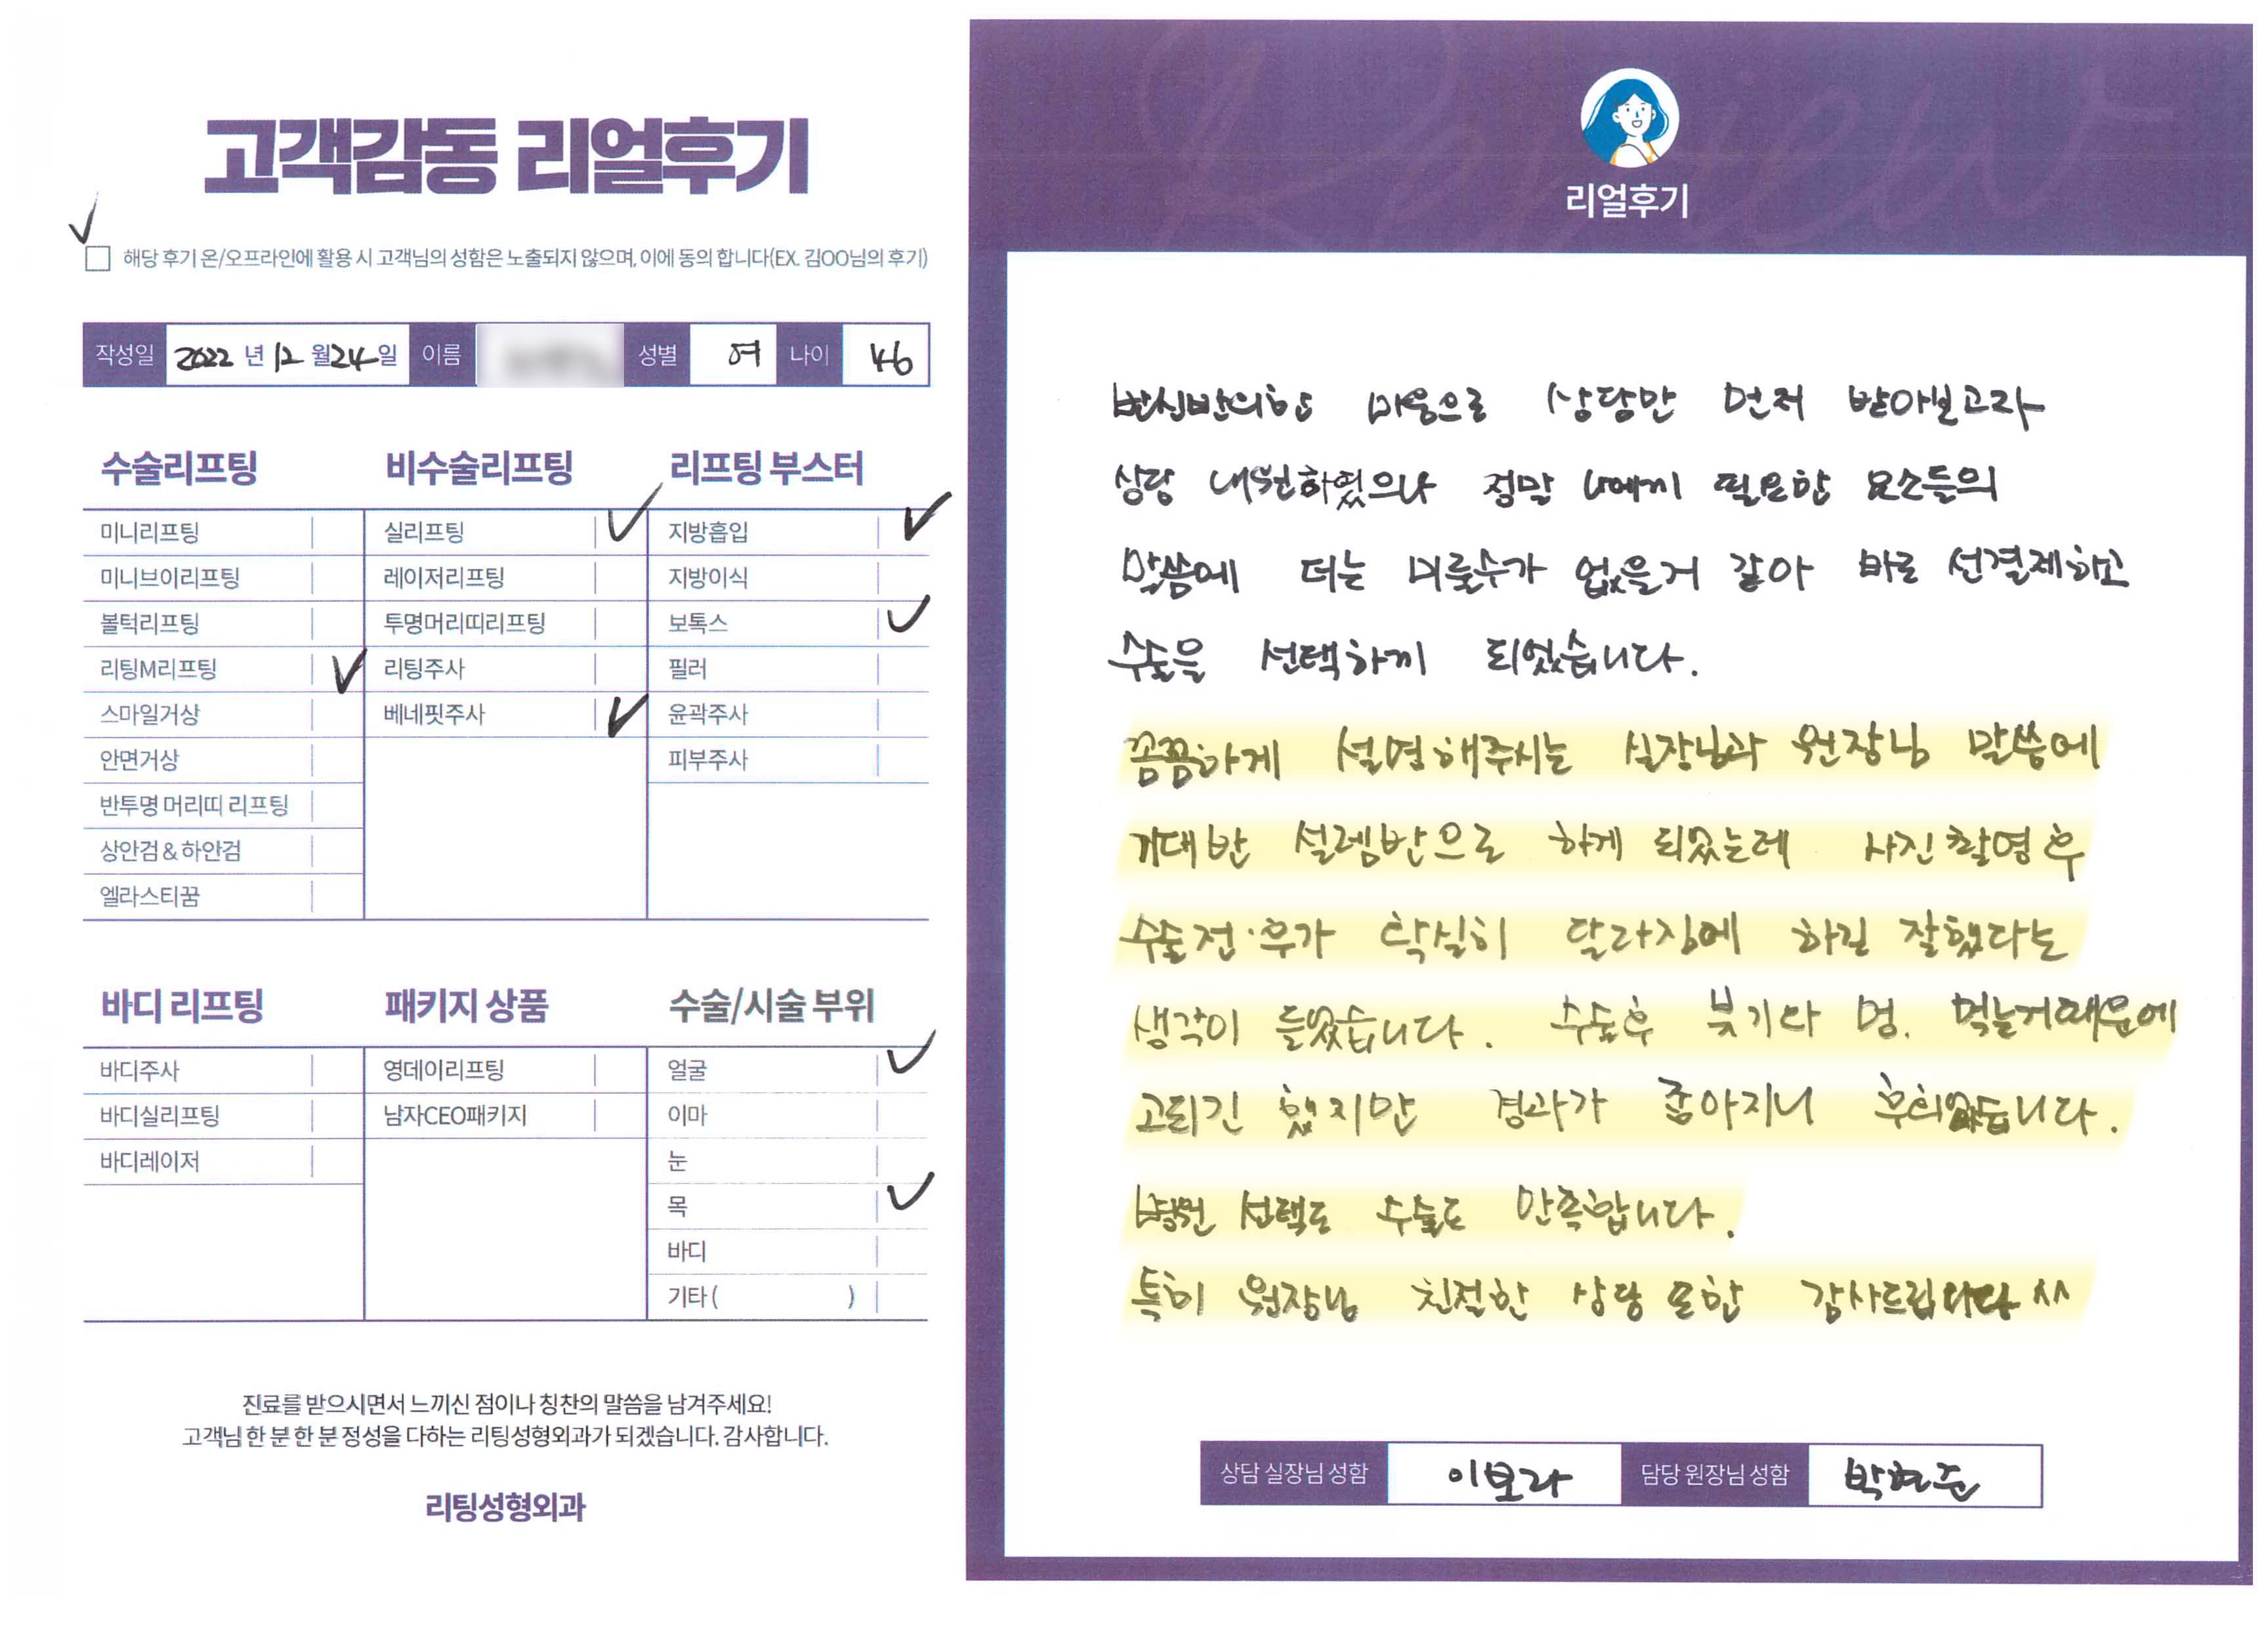 고객감동 리얼후기
✓
☐ 해당 후기 온/오프라인에 활용 시 고객님의 성함은 노출되지 않으며, 이에 동의 합니다(EX. 김OO님의 후기)
작성일 2022 년 12 월 24 일 이름 성별 여 나이 46
수술리프팅 비수술리프팅 리프팅 부스터
미니리프팅 실리프팅 ✓ 지방흡입 ✓
미니브이리프팅 레이저리프팅 지방이식
볼턱리프팅 투명머리띠리프팅 보톡스 ✓
리팅M리프팅 ✓ 리팅주사 필러
스마일거상 베네핏주사 ✓ 윤곽주사
안면거상 피부주사
반투명 머리띠 리프팅
상안검 & 하안검
엘라스티꿈
바디 리프팅 패키지 상품 수술/시술 부위
바디주사 영데이리프팅 얼굴 ✓
바디실리프팅 남자CEO패키지 이마
바디레이저 눈
목 ✓
바디
기타 ( )
진료를 받으시면서 느끼신 점이나 칭찬의 말씀을 남겨주세요!
고객님 한 분 한 분 정성을 다하는 리팅성형외과가 되겠습니다. 감사합니다.
리팅성형외과
Review
리얼후기
반신반의한 마음으로 상담만 먼저 받아보고자
상담 내원하였으나 정말 나에게 필요한 요소들의
말씀에 더는 미룰수가 없을거 같아 바로 선결제하고
수술을 선택하게 되었습니다.
꼼꼼하게 설명해주시는 실장님과 원장님 말씀에
기대반 설렘반으로 하게 되었는데 사진촬영후
수술전·후가 확실히 달라짐에 하길 잘했다는
생각이 들었습니다. 수술후 붓기나 멍. 먹는거때문에
고되긴 했지만 경과가 좋아지니 후회없습니다.
병원 선택도 수술도 만족합니다.
특히 원장님 친절한 상담 또한 감사드립니다 ^^
상담 실장님 성함 이보라 담당 원장님 성함 박현준